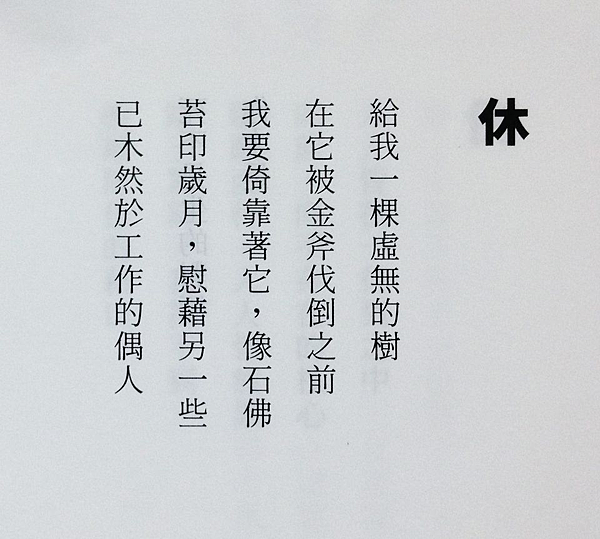 休
給我一棵虛無的樹
在它被金斧伐倒之前
我要倚靠著它，像石佛
苔印歲月，慰藉另一些
已木然於工作的偶人